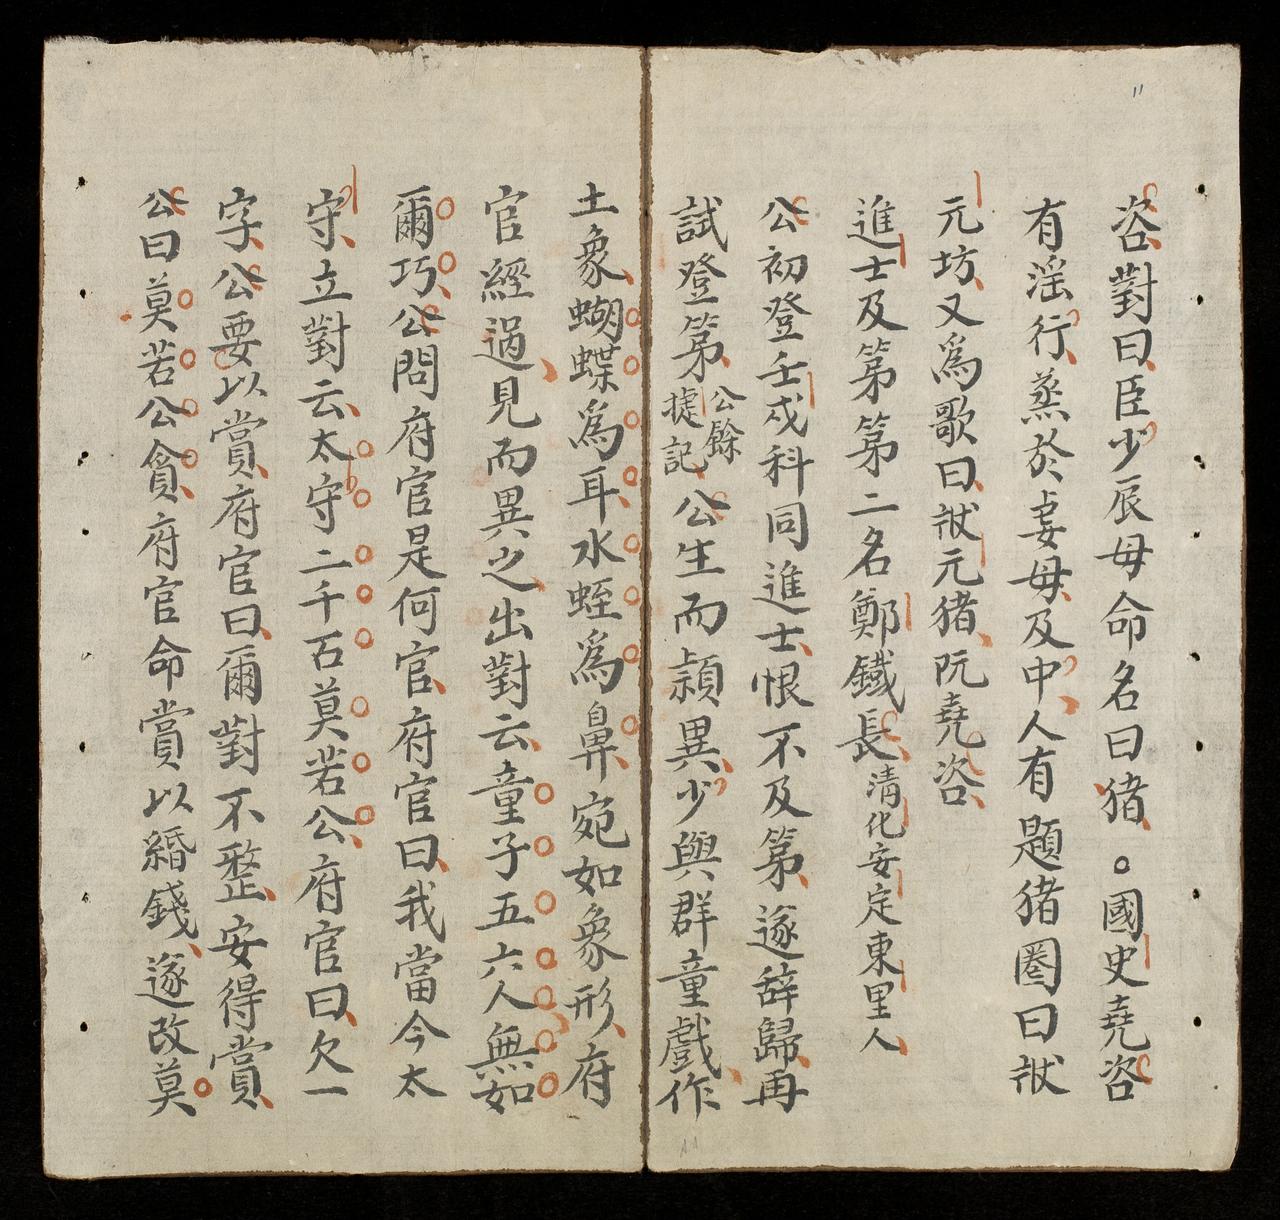 咨對曰臣少辰母命名曰猪○國史堯咨
有滛行蒸於妻母及中人有題猪圈曰狀
元坊又爲歌曰狀元猪阮堯咨
進士及第第二名鄭鐵長清化安定東里人
公初登壬戌科同進士恨不及第遂辞歸再
試登第公餘捷記公生而頴異少與群童戲作
土象蝴蝶爲耳水蛭爲鼻宛如象形府
官經過見而異之出對云童子五六人無如
爾巧公問府官是何官府官曰我當今太
守立對云太守二千石莫若公府官曰欠一
字公要以賞府官曰爾對不整安得賞
公曰莫若公貪府官命賞以緡錢遂改莫